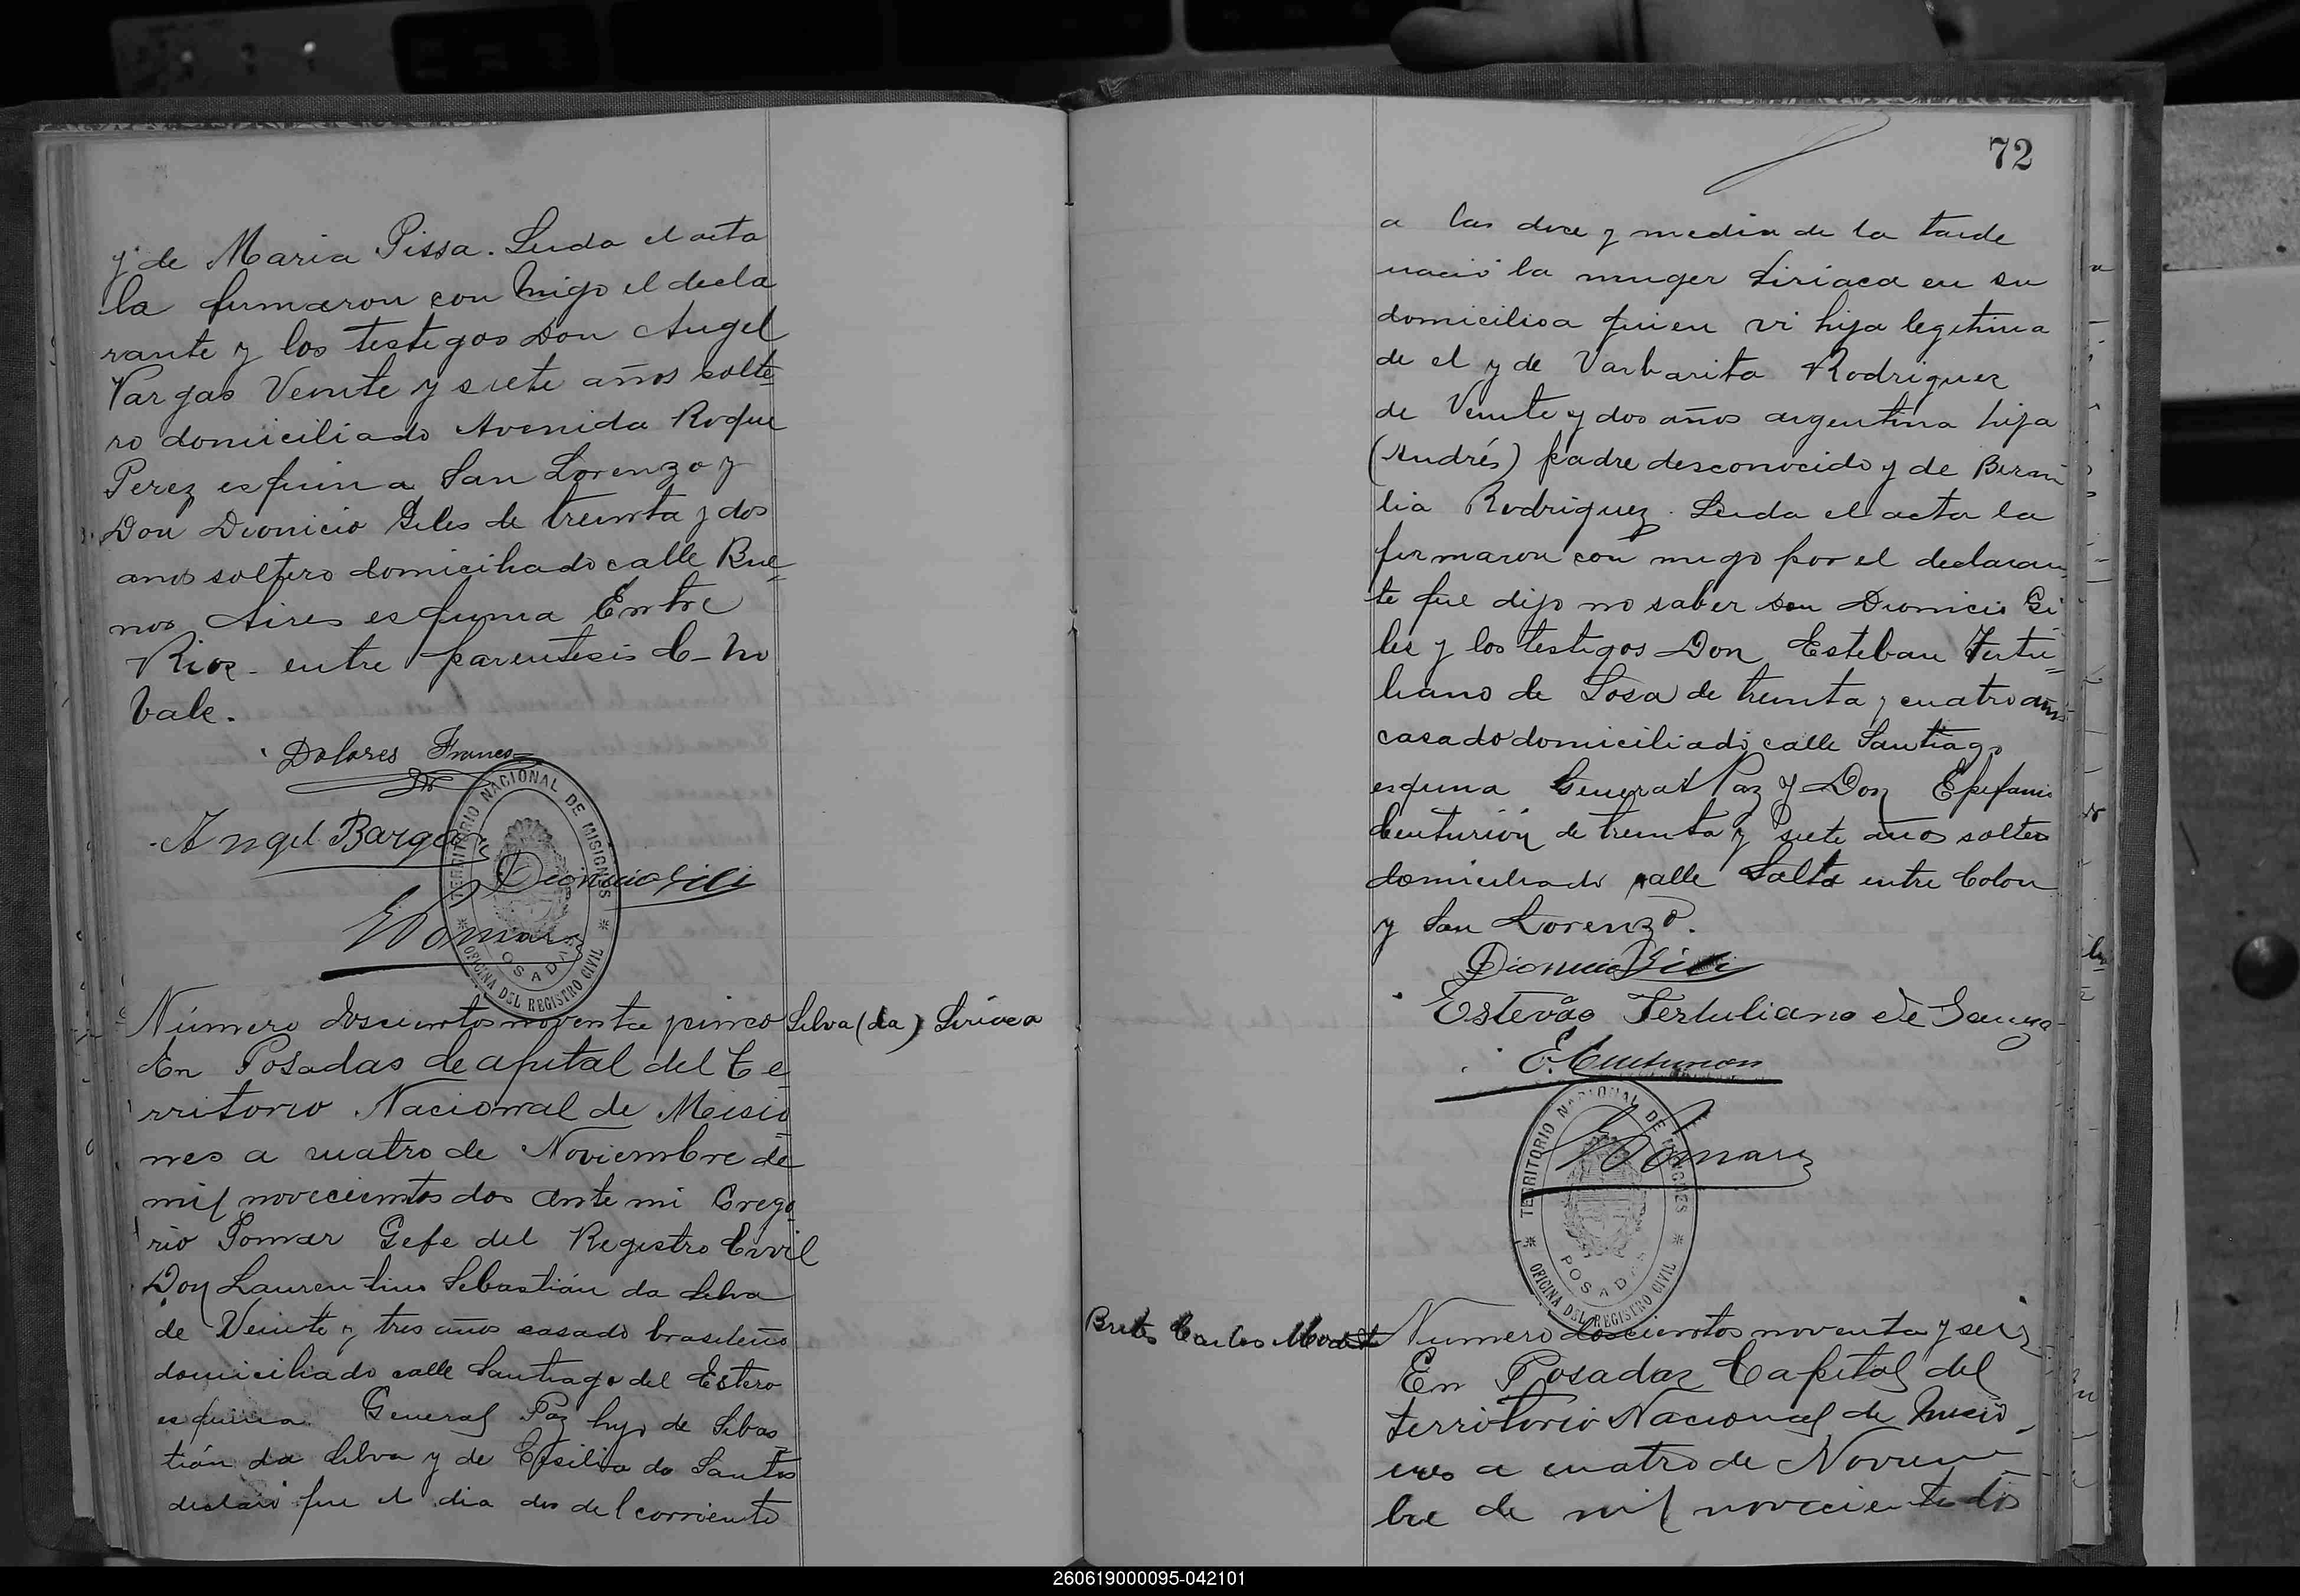 y de Maria Pissa. Leida el acta
la firmaron con migo el decla
rante y los testigos Don Angel
Vargas Veinte y siete años solte
ro domiciliado Avenida Roque
Perez esquina San Lorenzo y
Don Dionicio Giles de treinta y dos
años soltero domiciliado calle Bue
nos Aires esquina Entre
Rios - entre parentesis C - no
Vale.
Dolores Franco
Angel Bargas
Dionicio Gili
TERRITORIO NACIONAL DE MISIONES
POSADAS
OFICINA DEL REGISTRO CIVIL
Número doscientos noventa y cinco
Silva (da) Siriaca
En Posadas Capital del Te
rritorio Nacional de Misio
nes a cuatro de Noviembre de
mil novecientos dos ante mi Grego
rio Pomar Gefe del Registro Civil
Don Laurentino Sebastián da Silva
de Veinte y tres años casado brasileño
domiciliado calle Santiago del Estero
esquina General Paz hijo de Sebas
tián da Silva y de da Santos
declaró que el dia dos del corriente
72
a las doce y media de la tarde
nació la muger Siriaca en su
domicilio a quien vi hija legitima
de el y de Varbarita Rodriguez
de Veinte y dos años argentina hija
(Andrés) padre desconocido y de
lia Rodriguez. Leida el acta la
firmaron con migo por el declaran
te que dijo no saber Don Dionicio Gi
les y los testigos Don Esteban Tertu
liano de Sosa de treinta y cuatro años
casado domiciliado calle Santiago
esquina General Paz y Don Epifanio
Centurión de treinta y siete años soltero
domiciliado calle Salta entre Colon
y San Lorenzo.
Dionicio Gili
Estevão Tertuliano de Souza
E. Centurion
Pomar
TERRITORIO NACIONAL DE MISIONES
POSADAS
OFICINA DEL REGISTRO CIVIL
Brites Carlos Modesto
Numero doscientos noventa y seis
En Posadas Capital del
territorio Nacional de Misio
nes a cuatro de Noviem
bre de mil novecientos dos
260619000095-042101